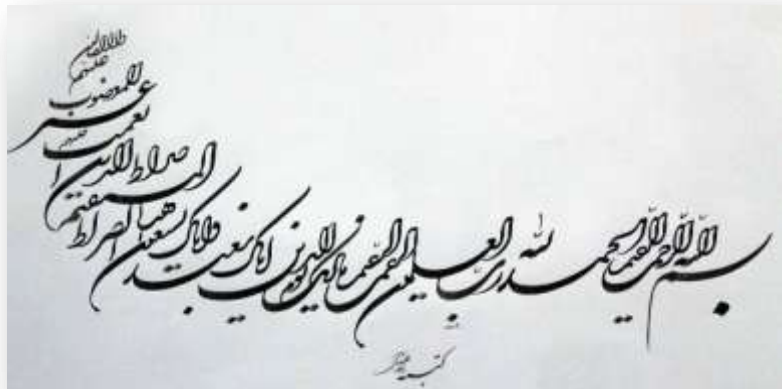 بسم الله الرحمن الرحیم الحمد لله رب العلمین الرحمن الرحیم مالک یوم الدین ایاک نعبد وایاک نستعین اهدنا الصراط المستقیم صراط الذین انعمت علیهم غیر المغضوب علیهم ولا الضالین
کتبه